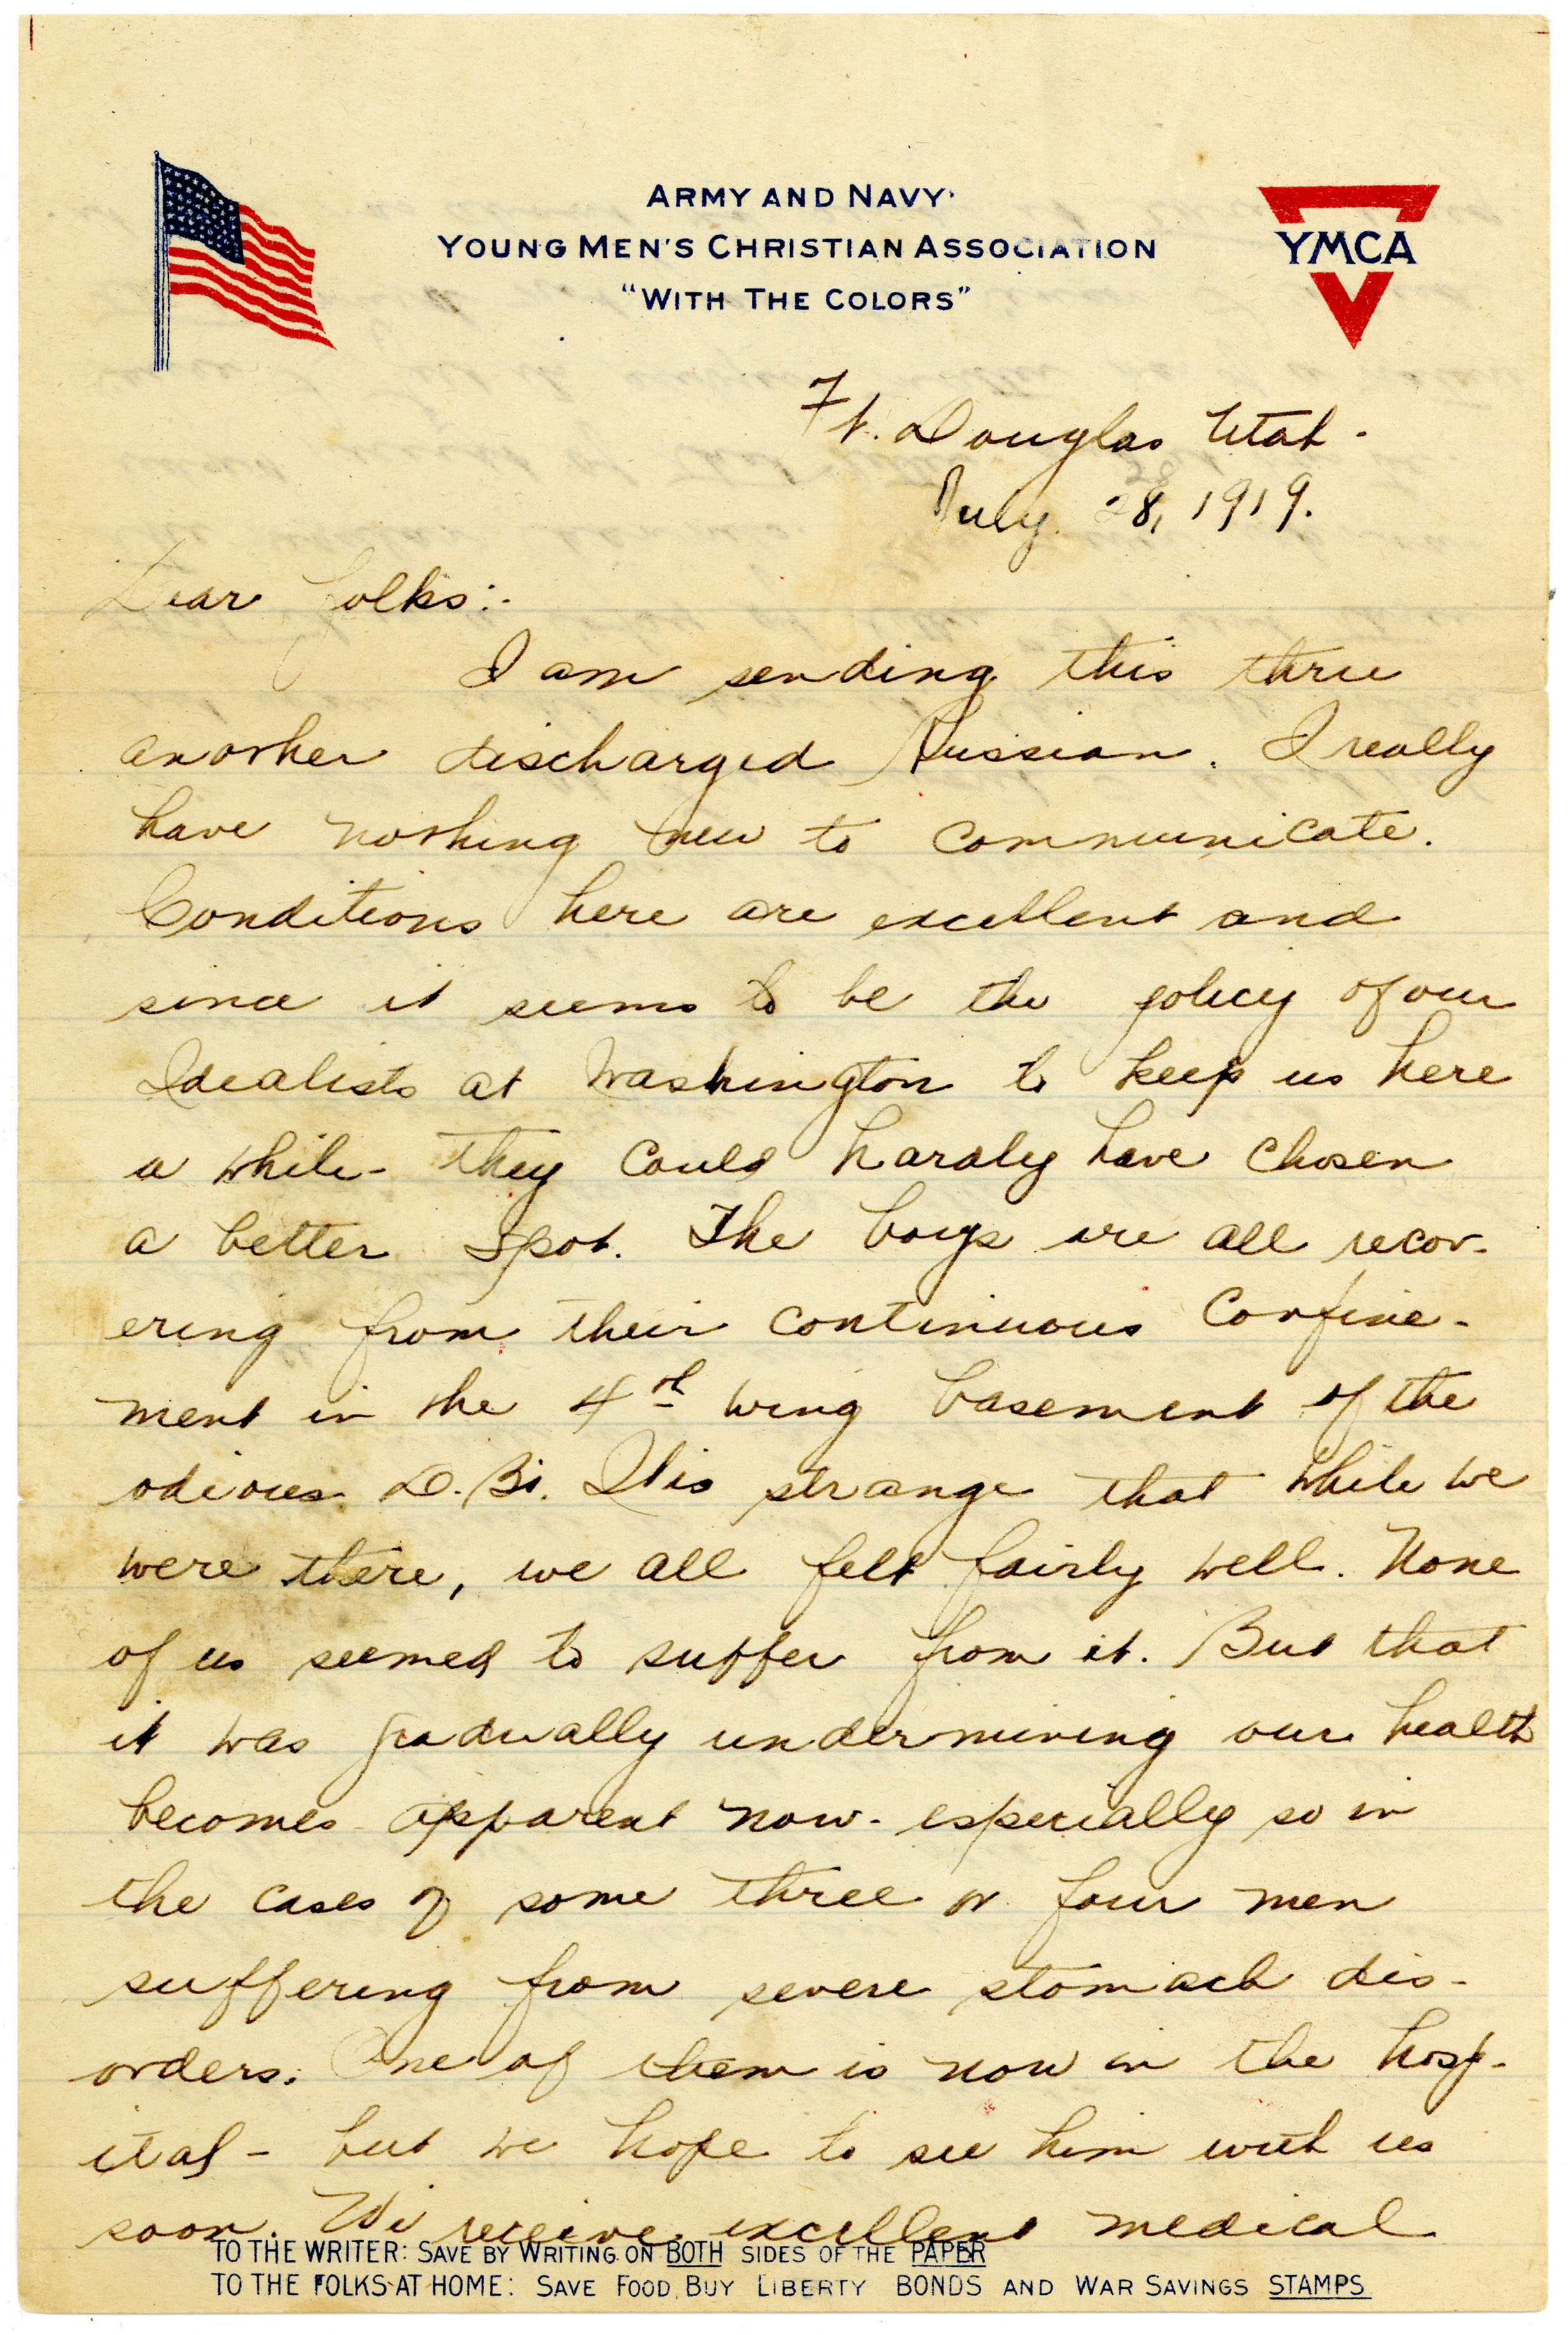 ARMY AND NAVY
YOUNG MEN'S CHRISTIAN ASSOCIATION
"WITH THE COLORS"
YMCA
Ft. Douglas Utah.
July 28, 1919.
Dear folks:-
I am sending this thru
another discharged Russian. I really
have nothing new to communicate.
Conditions here are excellent and
since it seems to be the policy of our
Idealists at Washington to keep us here
a while - they could hardly have chosen
a better spot. The boys are all recov-
ering from their continuous confine-
ment in the 4th wing basement of the
odious D.B. It is strange that while we
were there, we all felt fairly well. None
of us seemed to suffer from it. But that
it was gradually undermining our health
becomes apparent now - especially so in
the cases of some three or four men
suffering from severe stomach dis-
orders. One of them is now in the hosp-
ital - but we hope to see him with us
soon. We receive excellent medical
TO THE WRITER: SAVE BY WRITING ON BOTH SIDES OF THE PAPER
TO THE FOLKS AT HOME: SAVE FOOD, BUY LIBERTY BONDS AND WAR SAVINGS STAMPS